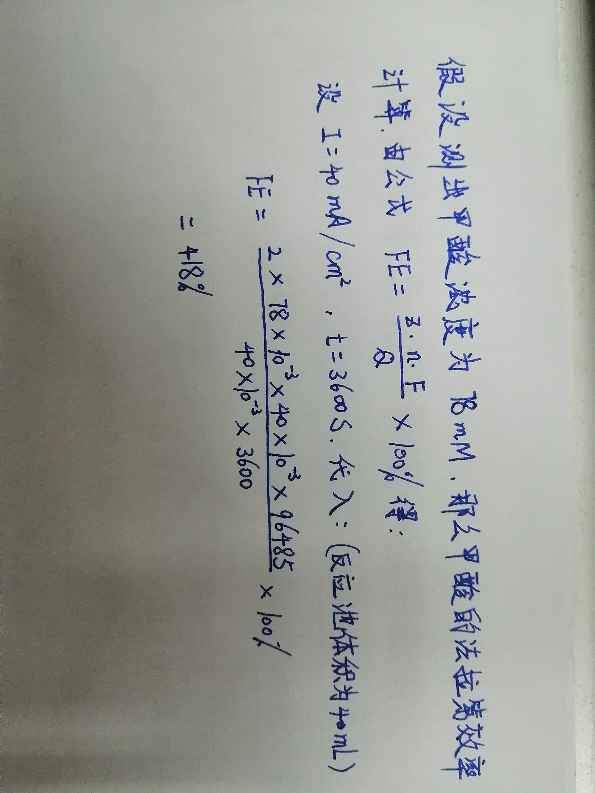 假设测出甲酸浓度为 78mM, 那么甲酸的法拉第效率
计算. 由公式 FE = z·n·F / Q × 100% 得:
设 I = 40 mA/cm², t = 3600S. 代入: (反应池体积为40mL)
FE = 2 × 78 × 10⁻³ × 40 × 10⁻³ × 96485 / 40 × 10⁻³ × 3600 × 100%
= 418%